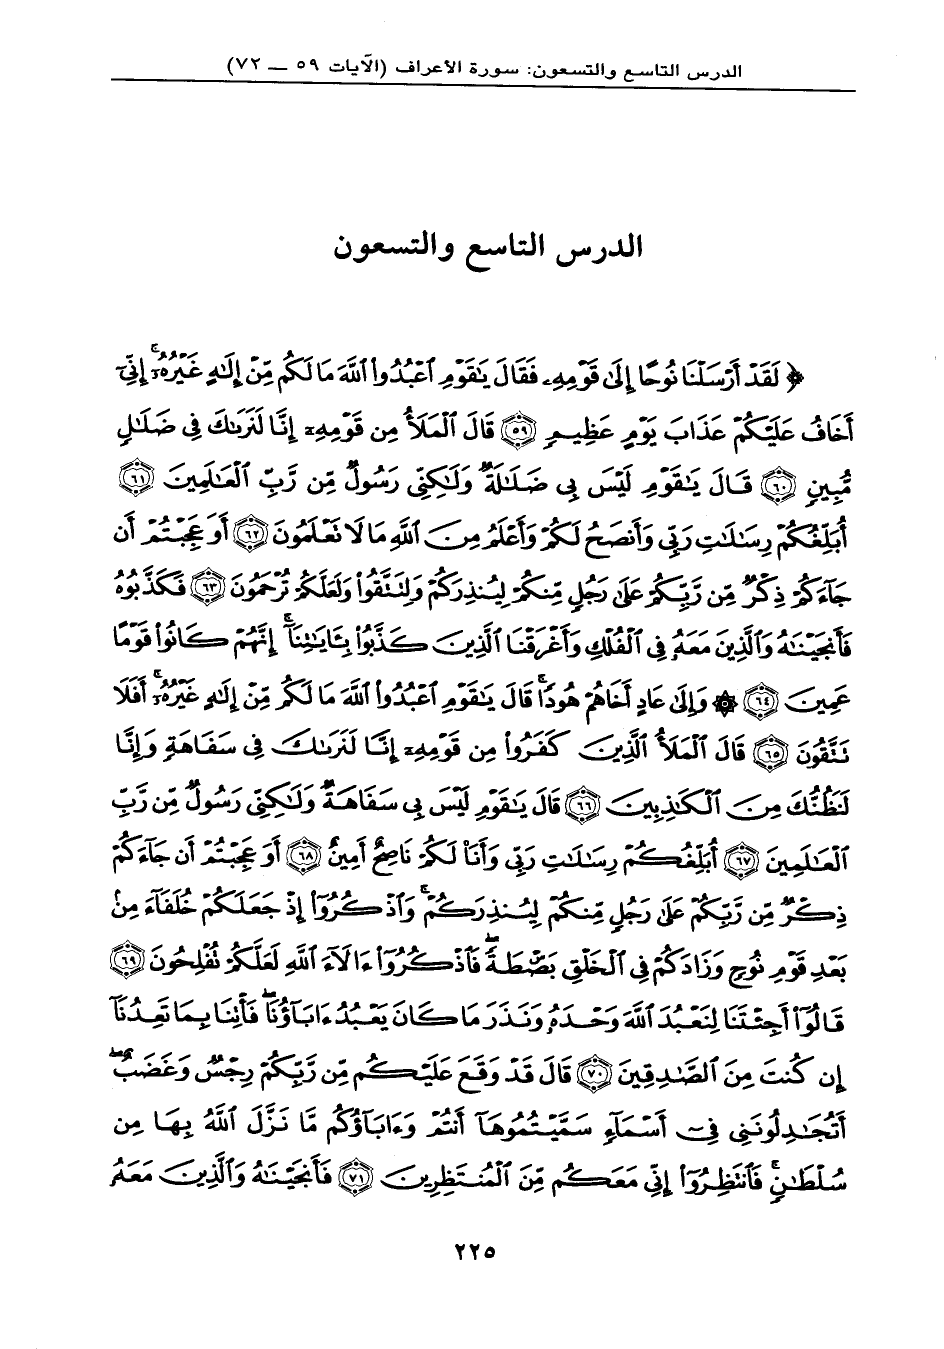 الدرس التاسع والتسعون: سورة الأعراف (الآيات ٥٩ — ٧٢)
الدرس التاسع والتسعون
﴿ لَقَدْ أَرْسَلْنَا نُوحًا إِلَىٰ قَوْمِهِۦ فَقَالَ يَٰقَوْمِ ٱعْبُدُوا۟ ٱللَّهَ مَا لَكُم مِّنْ إِلَٰهٍ غَيْرُهُۥٓ ۚ إِنِّىٓ
أَخَافُ عَلَيْكُمْ عَذَابَ يَوْمٍ عَظِيمٍ ٥٩ قَالَ ٱلْمَلَأُ مِن قَوْمِهِۦٓ إِنَّا لَنَرَىٰكَ فِى ضَلَٰلٍ
مُّبِينٍ ٦٠ قَالَ يَٰقَوْمِ لَيْسَ بِى ضَلَٰلَةٌ وَلَٰكِنِّى رَسُولٌ مِّن رَّبِّ ٱلْعَٰلَمِينَ ٦١
أُبَلِّغُكُمْ رِسَٰلَٰتِ رَبِّى وَأَنصَحُ لَكُمْ وَأَعْلَمُ مِنَ ٱللَّهِ مَا لَا تَعْلَمُونَ ٦٢ أَوَعَجِبْتُمْ أَن
جَآءَكُمْ ذِكْرٌ مِّن رَّبِّكُمْ عَلَىٰ رَجُلٍ مِّنكُمْ لِيُنذِرَكُمْ وَلِتَتَّقُوا۟ وَلَعَلَّكُمْ تُرْحَمُونَ ٦٣ فَكَذَّبُوهُ
فَأَنجَيْنَٰهُ وَٱلَّذِينَ مَعَهُۥ فِى ٱلْفُلْكِ وَأَغْرَقْنَا ٱلَّذِينَ كَذَّبُوا۟ بِـَٔايَٰتِنَآ ۚ إِنَّهُمْ كَانُوا۟ قَوْمًا
عَمِينَ ٦٤ ۞ وَإِلَىٰ عَادٍ أَخَاهُمْ هُودًا ۗ قَالَ يَٰقَوْمِ ٱعْبُدُوا۟ ٱللَّهَ مَا لَكُم مِّنْ إِلَٰهٍ غَيْرُهُۥٓ ۚ أَفَلَا
تَتَّقُونَ ٦٥ قَالَ ٱلْمَلَأُ ٱلَّذِينَ كَفَرُوا۟ مِن قَوْمِهِۦٓ إِنَّا لَنَرَىٰكَ فِى سَفَاهَةٍ وَإِنَّا
لَنَظُنُّكَ مِنَ ٱلْكَٰذِبِينَ ٦٦ قَالَ يَٰقَوْمِ لَيْسَ بِى سَفَاهَةٌ وَلَٰكِنِّى رَسُولٌ مِّن رَّبِّ
ٱلْعَٰلَمِينَ ٦٧ أُبَلِّغُكُمْ رِسَٰلَٰتِ رَبِّى وَأَنَا۠ لَكُمْ نَاصِحٌ أَمِينٌ ٦٨ أَوَعَجِبْتُمْ أَن جَآءَكُمْ
ذِكْرٌ مِّن رَّبِّكُمْ عَلَىٰ رَجُلٍ مِّنكُمْ لِيُنذِرَكُمْ ۚ وَٱذْكُرُوٓا۟ إِذْ جَعَلَكُمْ خُلَفَآءَ مِنۢ
بَعْدِ قَوْمِ نُوحٍ وَزَادَكُمْ فِى ٱلْخَلْقِ بَصْۜطَةً ۖ فَٱذْكُرُوٓا۟ ءَالَآءَ ٱللَّهِ لَعَلَّكُمْ تُفْلِحُونَ ٦٩
قَالُوٓا۟ أَجِئْتَنَا لِنَعْبُدَ ٱللَّهَ وَحْدَهُۥ وَنَذَرَ مَا كَانَ يَعْبُدُ ءَابَآؤُنَا ۖ فَأْتِنَا بِمَا تَعِدُنَآ
إِن كُنتَ مِنَ ٱلصَّٰدِقِينَ ٧٠ قَالَ قَدْ وَقَعَ عَلَيْكُم مِّن رَّبِّكُمْ رِجْسٌ وَغَضَبٌ ۖ
أَتُجَٰدِلُونَنِى فِىٓ أَسْمَآءٍ سَمَّيْتُمُوهَآ أَنتُمْ وَءَابَآؤُكُم مَّا نَزَّلَ ٱللَّهُ بِهَا مِن
سُلْطَٰنٍ ۚ فَٱنتَظِرُوٓا۟ إِنِّى مَعَكُم مِّنَ ٱلْمُنتَظِرِينَ ٧١ فَأَنجَيْنَٰهُ وَٱلَّذِينَ مَعَهُۥ
٢٢٥